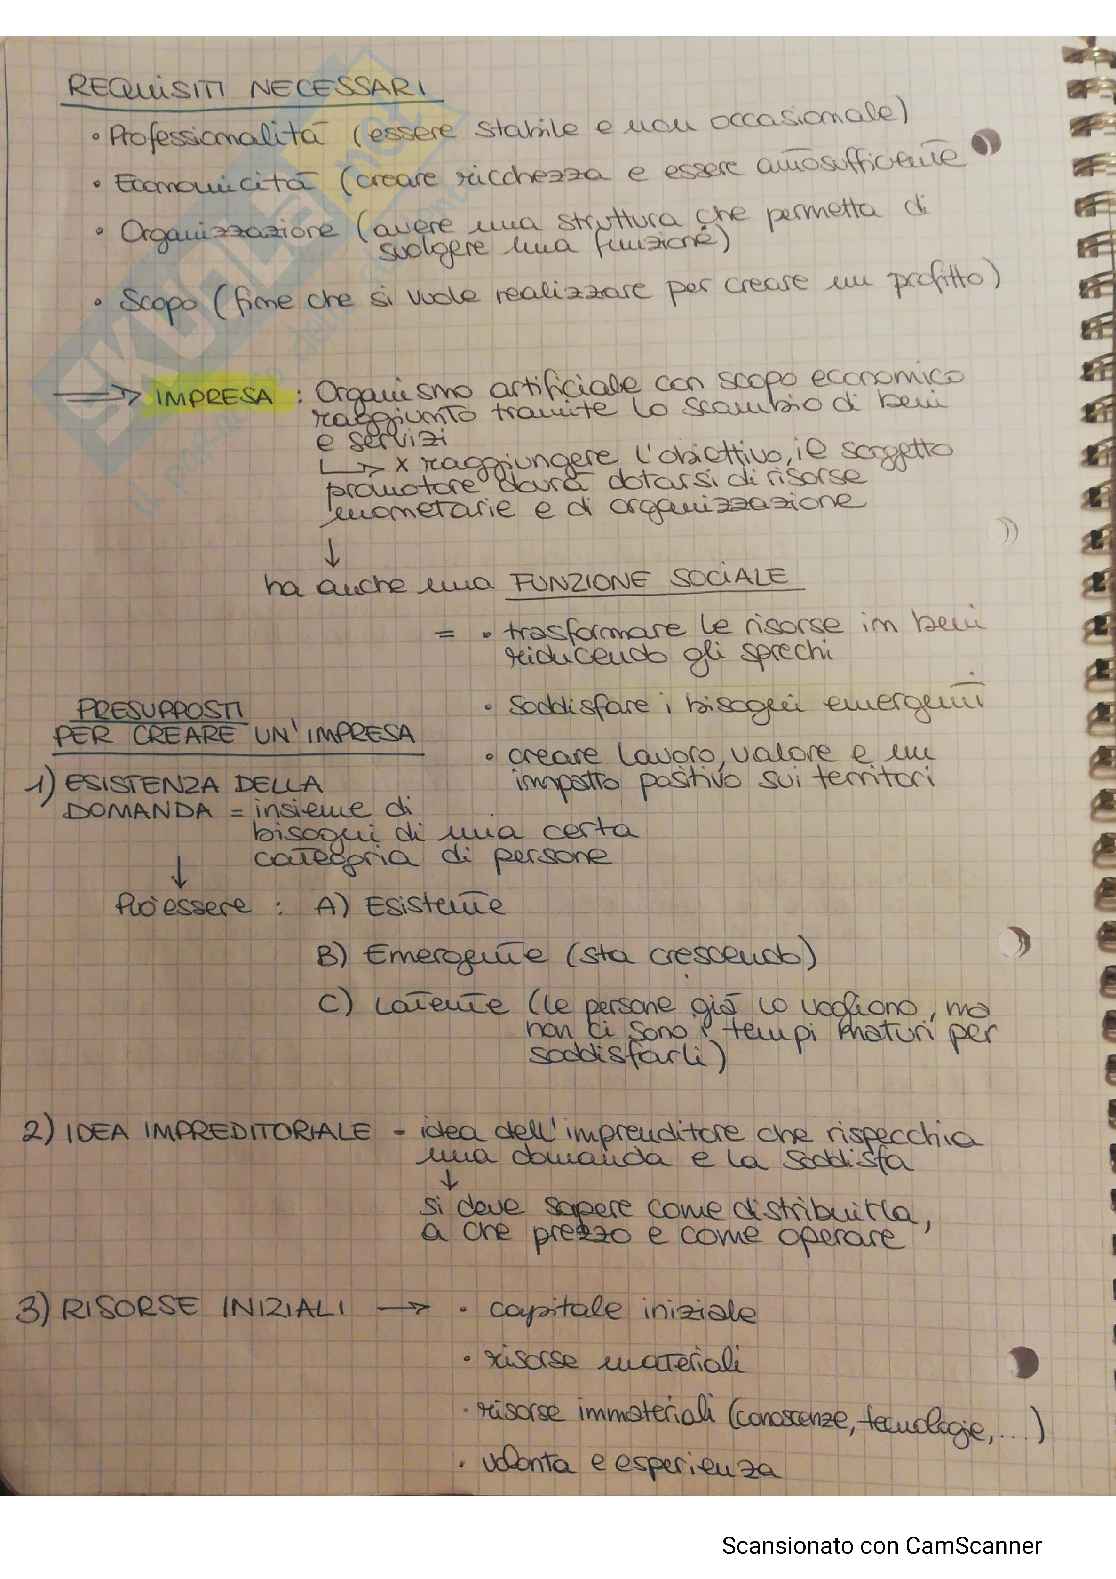 REQUISITI NECESSARI
• Professionalità (essere stabile e non occasionale)
• Economicità (creare ricchezza e essere autosufficiente
• Organizzazione (avere una struttura che permetta di
svolgere una funzione)
• Scopo (fine che si vuole realizzare per creare un profitto)
→ IMPRESA : Organismo artificiale con scopo economico
raggiunto tramite lo scambio di beni
e servizi
↳ x raggiungere l'obiettivo, il soggetto
promotore dovrà dotarsi di risorse
monetarie e di organizzazione
↓
ha anche una FUNZIONE SOCIALE
= • trasformare le risorse in beni
riducendo gli sprechi
• Soddisfare i bisogni emergenti
• creare lavoro, valore e un
impatto positivo sui territori
PRESUPPOSTI
PER CREARE UN'IMPRESA
1) ESISTENZA DELLA
DOMANDA = insieme di
bisogni di una certa
categoria di persone
↓
Può essere : A) Esistente
B) Emergente (sta crescendo)
C) Latente (le persone già lo vogliono, ma
non ci sono i tempi maturi per
soddisfarli)
2) IDEA IMPREDITORIALE - idea dell'imprenditore che rispecchia
una domanda e la soddisfa
↓
si deve sapere come distribuirla,
a che prezzo e come operare
3) RISORSE INIZIALI → • capitale iniziale
• risorse materiali
• risorse immateriali (conoscenze, tecnologie, ...)
• volontà e esperienza
SKUOLA.net
Scansionato con CamScanner